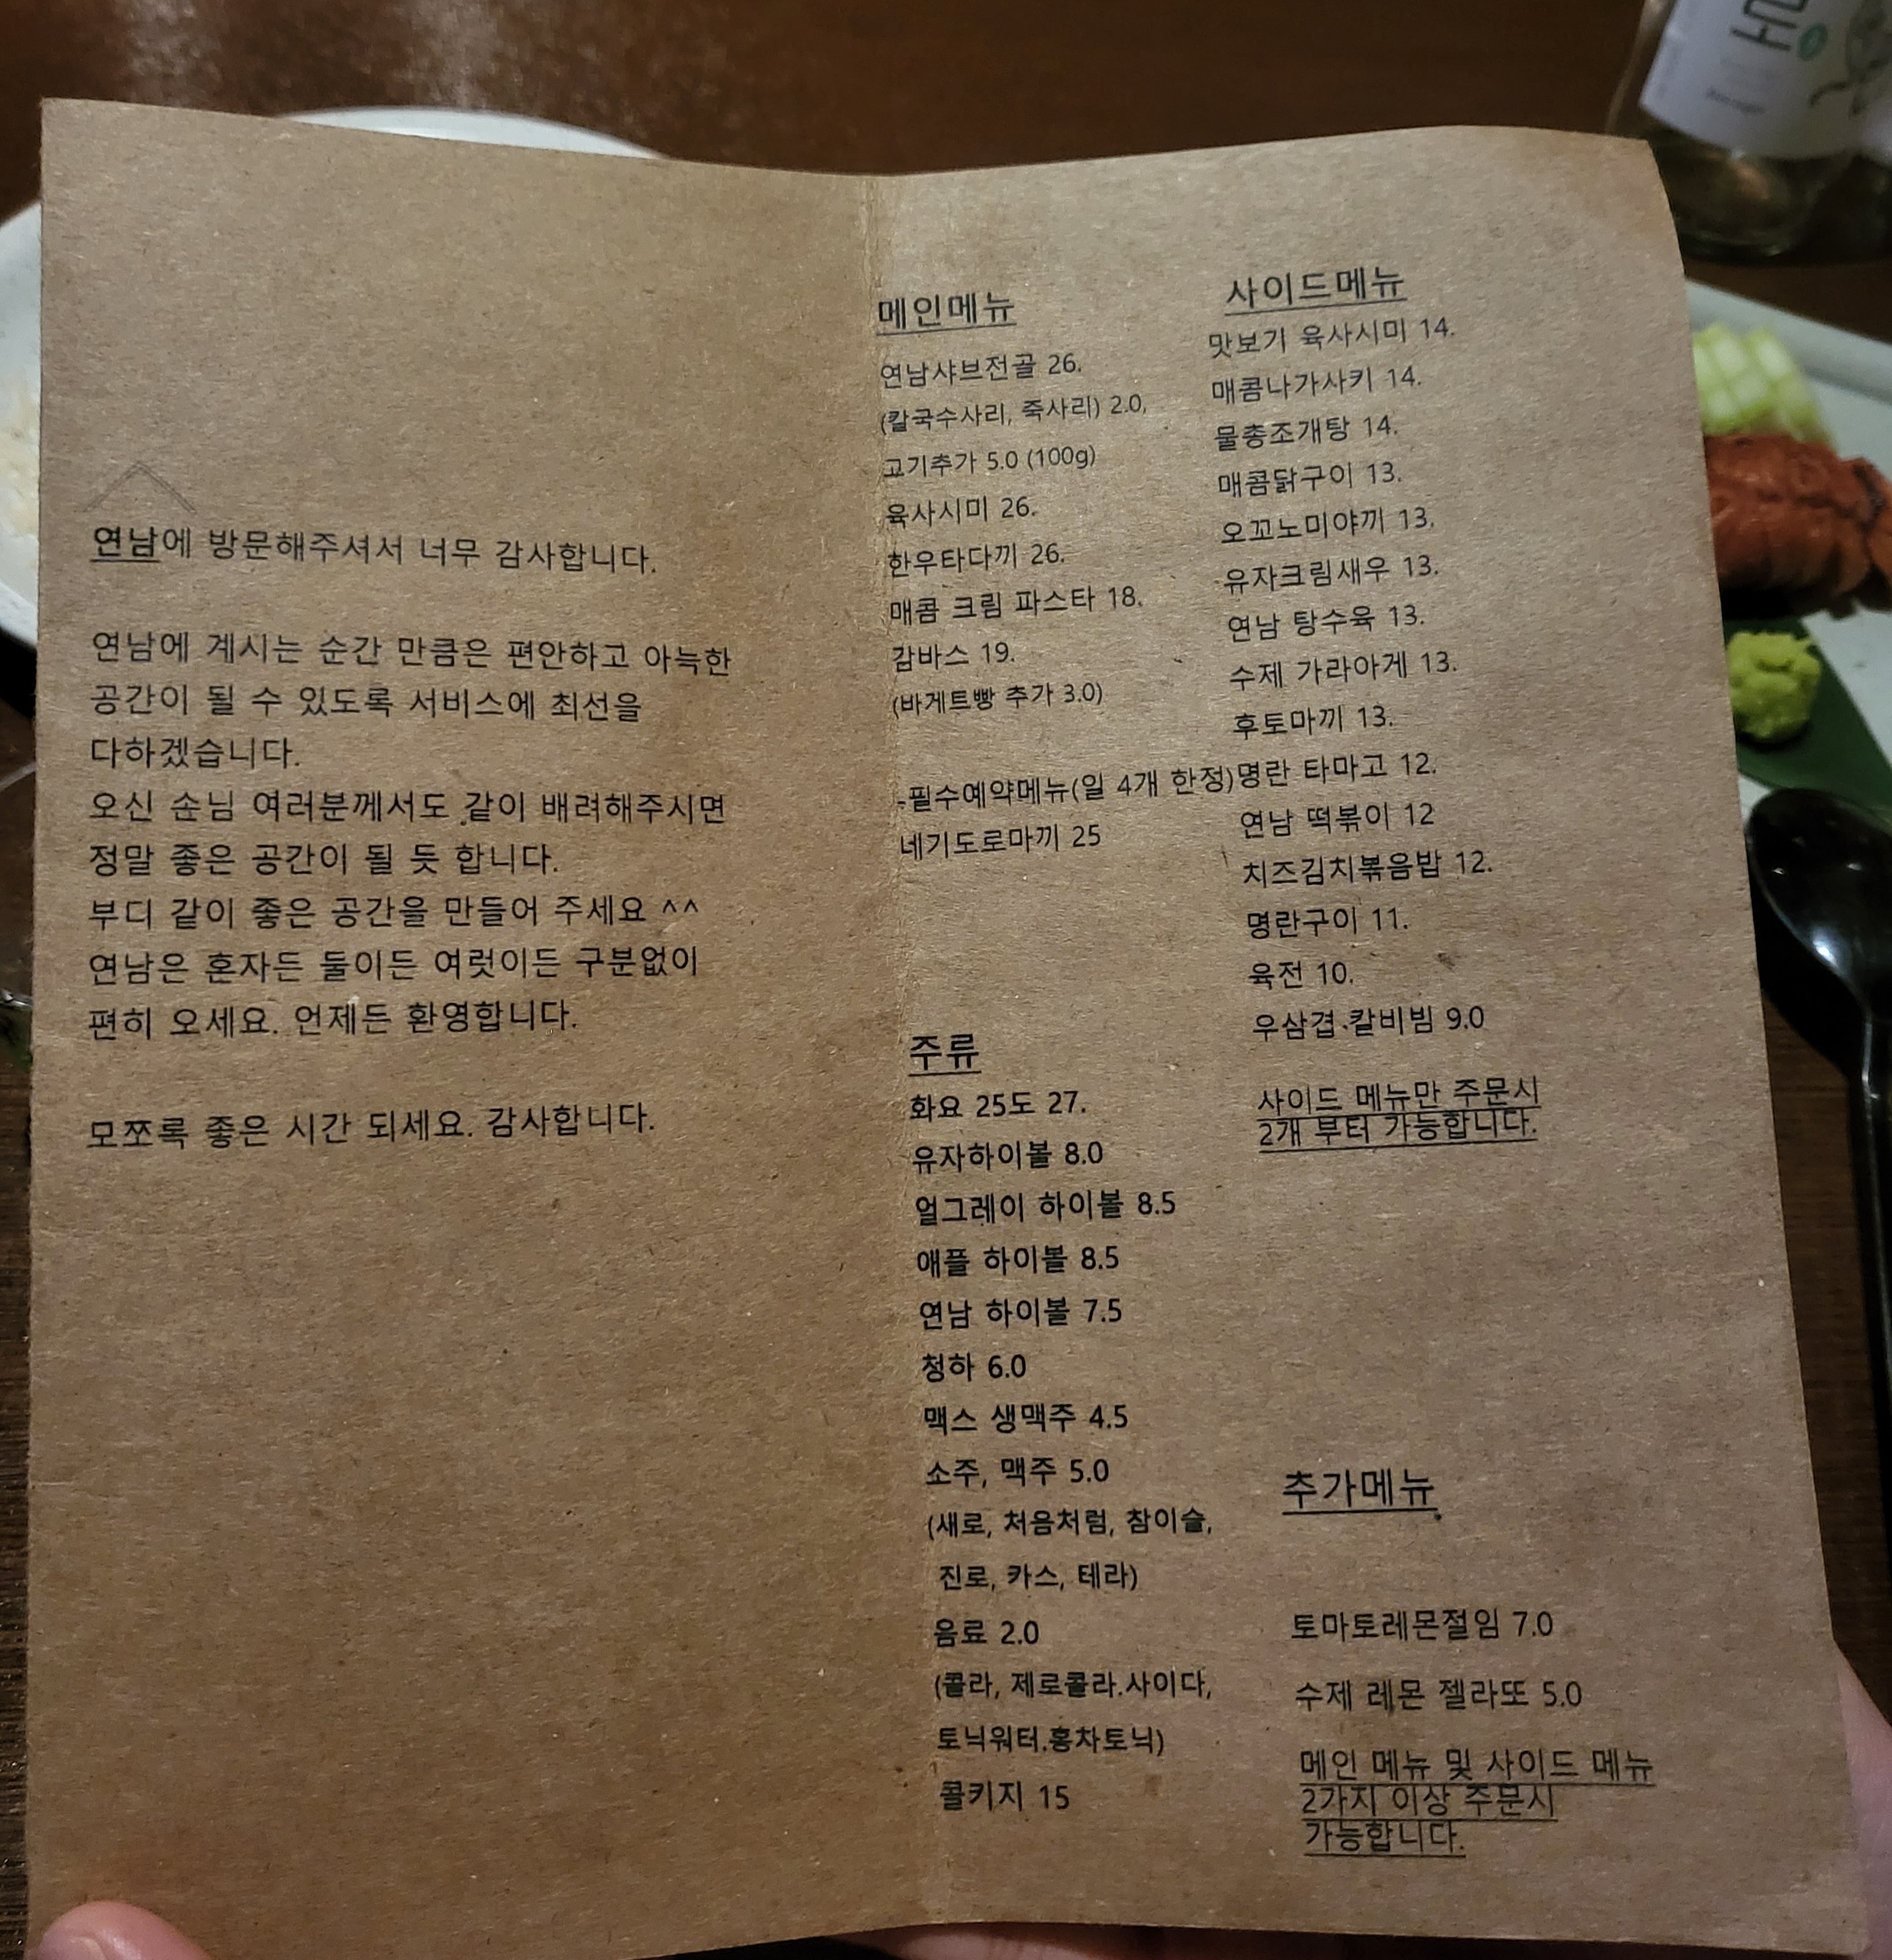 연남에 방문해주셔서 너무 감사합니다.
연남에 계시는 순간 만큼은 편안하고 아늑한
공간이 될 수 있도록 서비스에 최선을
다하겠습니다.
오신 손님 여러분께서도 같이 배려해주시면
정말 좋은 공간이 될 듯 합니다.
부디 같이 좋은 공간을 만들어 주세요 ^^
연남은 혼자든 둘이든 여럿이든 구분없이
편히 오세요. 언제든 환영합니다.
모쪼록 좋은 시간 되세요. 감사합니다.
메인메뉴
연남샤브전골 26.
(칼국수사리, 죽사리) 2.0,
고기추가 5.0 (100g)
육사시미 26.
한우타다끼 26.
매콤 크림 파스타 18.
감바스 19.
(바게트빵 추가 3.0)
-필수예약메뉴(일 4개 한정)
네기도로마끼 25
주류
화요 25도 27.
유자하이볼 8.0
얼그레이 하이볼 8.5
애플 하이볼 8.5
연남 하이볼 7.5
청하 6.0
맥스 생맥주 4.5
소주, 맥주 5.0
(새로, 처음처럼, 참이슬,
진로, 카스, 테라)
음료 2.0
(콜라, 제로콜라.사이다,
토닉워터.홍차토닉)
콜키지 15
사이드메뉴
맛보기 육사시미 14.
매콤나가사키 14.
물총조개탕 14.
매콤닭구이 13.
오꼬노미야끼 13.
유자크림새우 13.
연남 탕수육 13.
수제 가라아게 13.
후토마끼 13.
명란 타마고 12.
연남 떡볶이 12
치즈김치볶음밥 12.
명란구이 11.
육전 10.
우삼겹.칼비빔 9.0
사이드 메뉴만 주문시
2개 부터 가능합니다.
추가메뉴
토마토레몬절임 7.0
수제 레몬 젤라또 5.0
메인 메뉴 및 사이드 메뉴
2가지 이상 주문시
가능합니다.